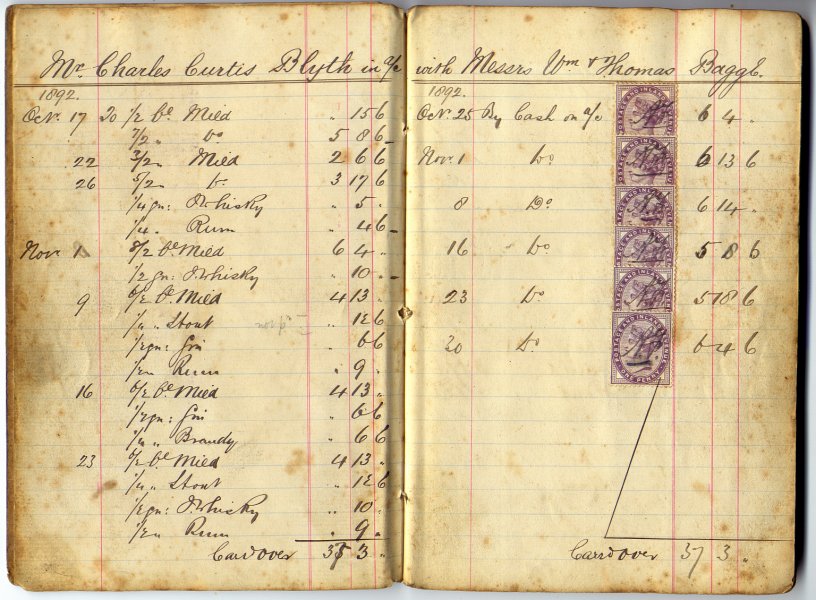 Mr. Charles Curtis Blyth in a/c with Messrs Wm & Thomas Bagge.
1892.
Oct. 17 To 1/2 be Mild " 15 6
7/2 " Do 5 8 6
22 3/2 " Mild 2 6 6
26 5/2 " Do 3 17 6
1/4 gn: I. Whisky " 5 "
1/4 " Rum " 4 6
Novr 1 8/2 be Mild 6 4 "
1/2 gn: I. Whisky " 10 "
9 6/2 be Mild 4 13 "
1/4 " Stout " 12 6
1/2 gn: Gin " 6 6
Rum " 9 "
16 6/2 be Mild 4 13 "
1/2 gn: Gin " 6 6
1/4 " Brandy " 6 6
23 6/2 be Mild 4 13 "
1/4 " Stout " 12 6
1/2 gn: I. Whisky " 10 "
Rum " 9 "
Card over 37 3 "
1892.
Oct. 25 By Cash on a/c 6 4 "
Novr. 1 Do 6 13 6
8 Do 6 14 "
16 Do 5 8 6
23 Do 5 18 6
30 Do 6 4 6
POSTAGE AND INLAND REVENUE
ONE PENNY
Carrd over 37 3 "